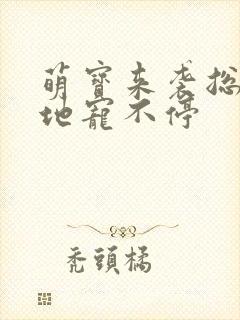 萌寶來袭总
地寵不停
禿頭橘